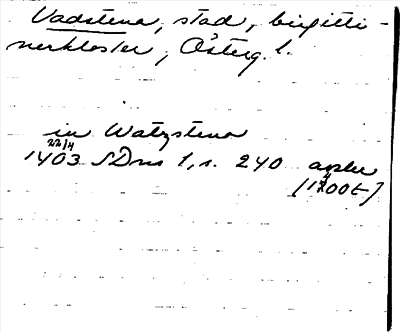 Vadstena, stad, birgitti-
nerkloster, Österg. l.
in Watzstena
22/4
1403 SDns 1, s. 240